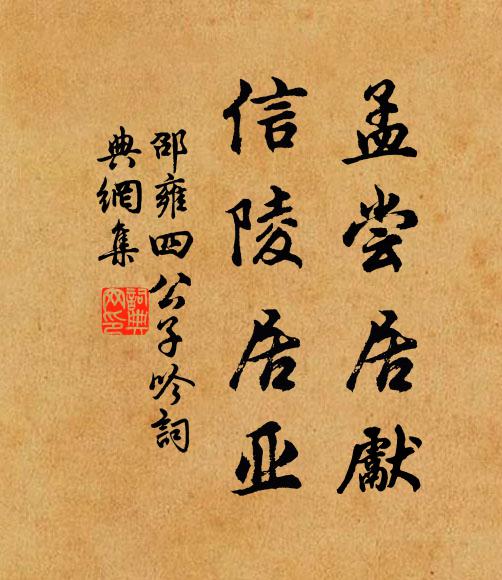 孟尝居獻
信陵居亚
邵雍四公子吟詞
典網集
詞典网印